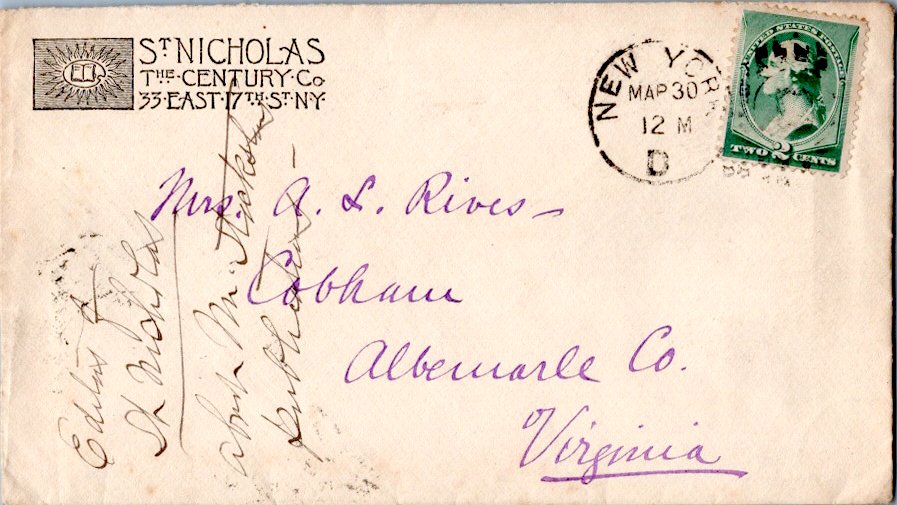 ST NICHOLAS
THE·CENTURY·CO
33·EAST·17TH·ST·N·Y·
NEW YORK
MAR 30
12 M
D
UNITED STATES POSTAGE
TWO 2 CENTS
Mrs. A. L. Rives
Cobham
Albemarle Co.
Virginia
Editor of
St Nicholas
about Mr
publication